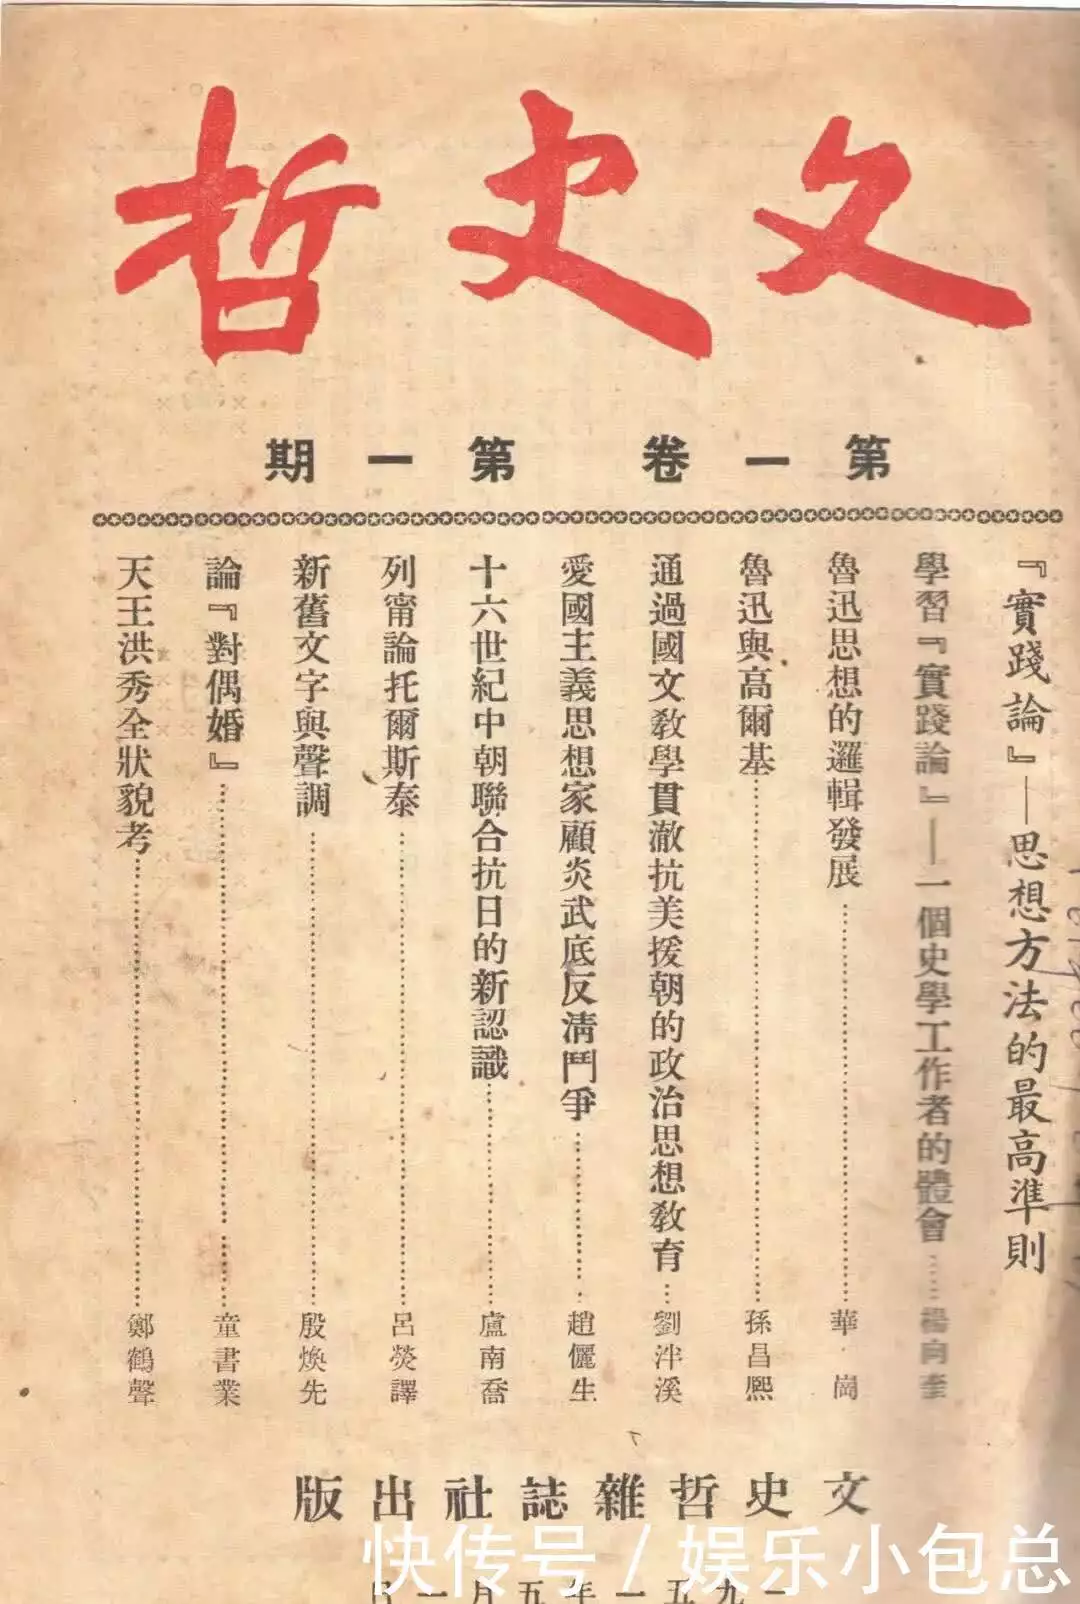 文史哲
第一卷 第一期
『實踐論』——思想方法的最高準則
學習『實踐論』——一個史學工作者的體會……楊向奎
魯迅思想的邏輯發展……華崗
魯迅與高爾基……孫昌熙
通過國文教學貫澈抗美援朝的政治思想教育……劉泮溪
愛國主義思想家顧炎武底反淸鬥爭……趙儷生
十六世紀中朝聯合抗日的新認識……盧南喬
列甯論托爾斯泰……呂熒譯
新舊文字與聲調……殷煥先
論『對偶婚』……童書業
天王洪秀全狀貌考……鄭鶴聲
文史哲雜誌社出版
一九五一年五月一日
快传号/娱乐小包总